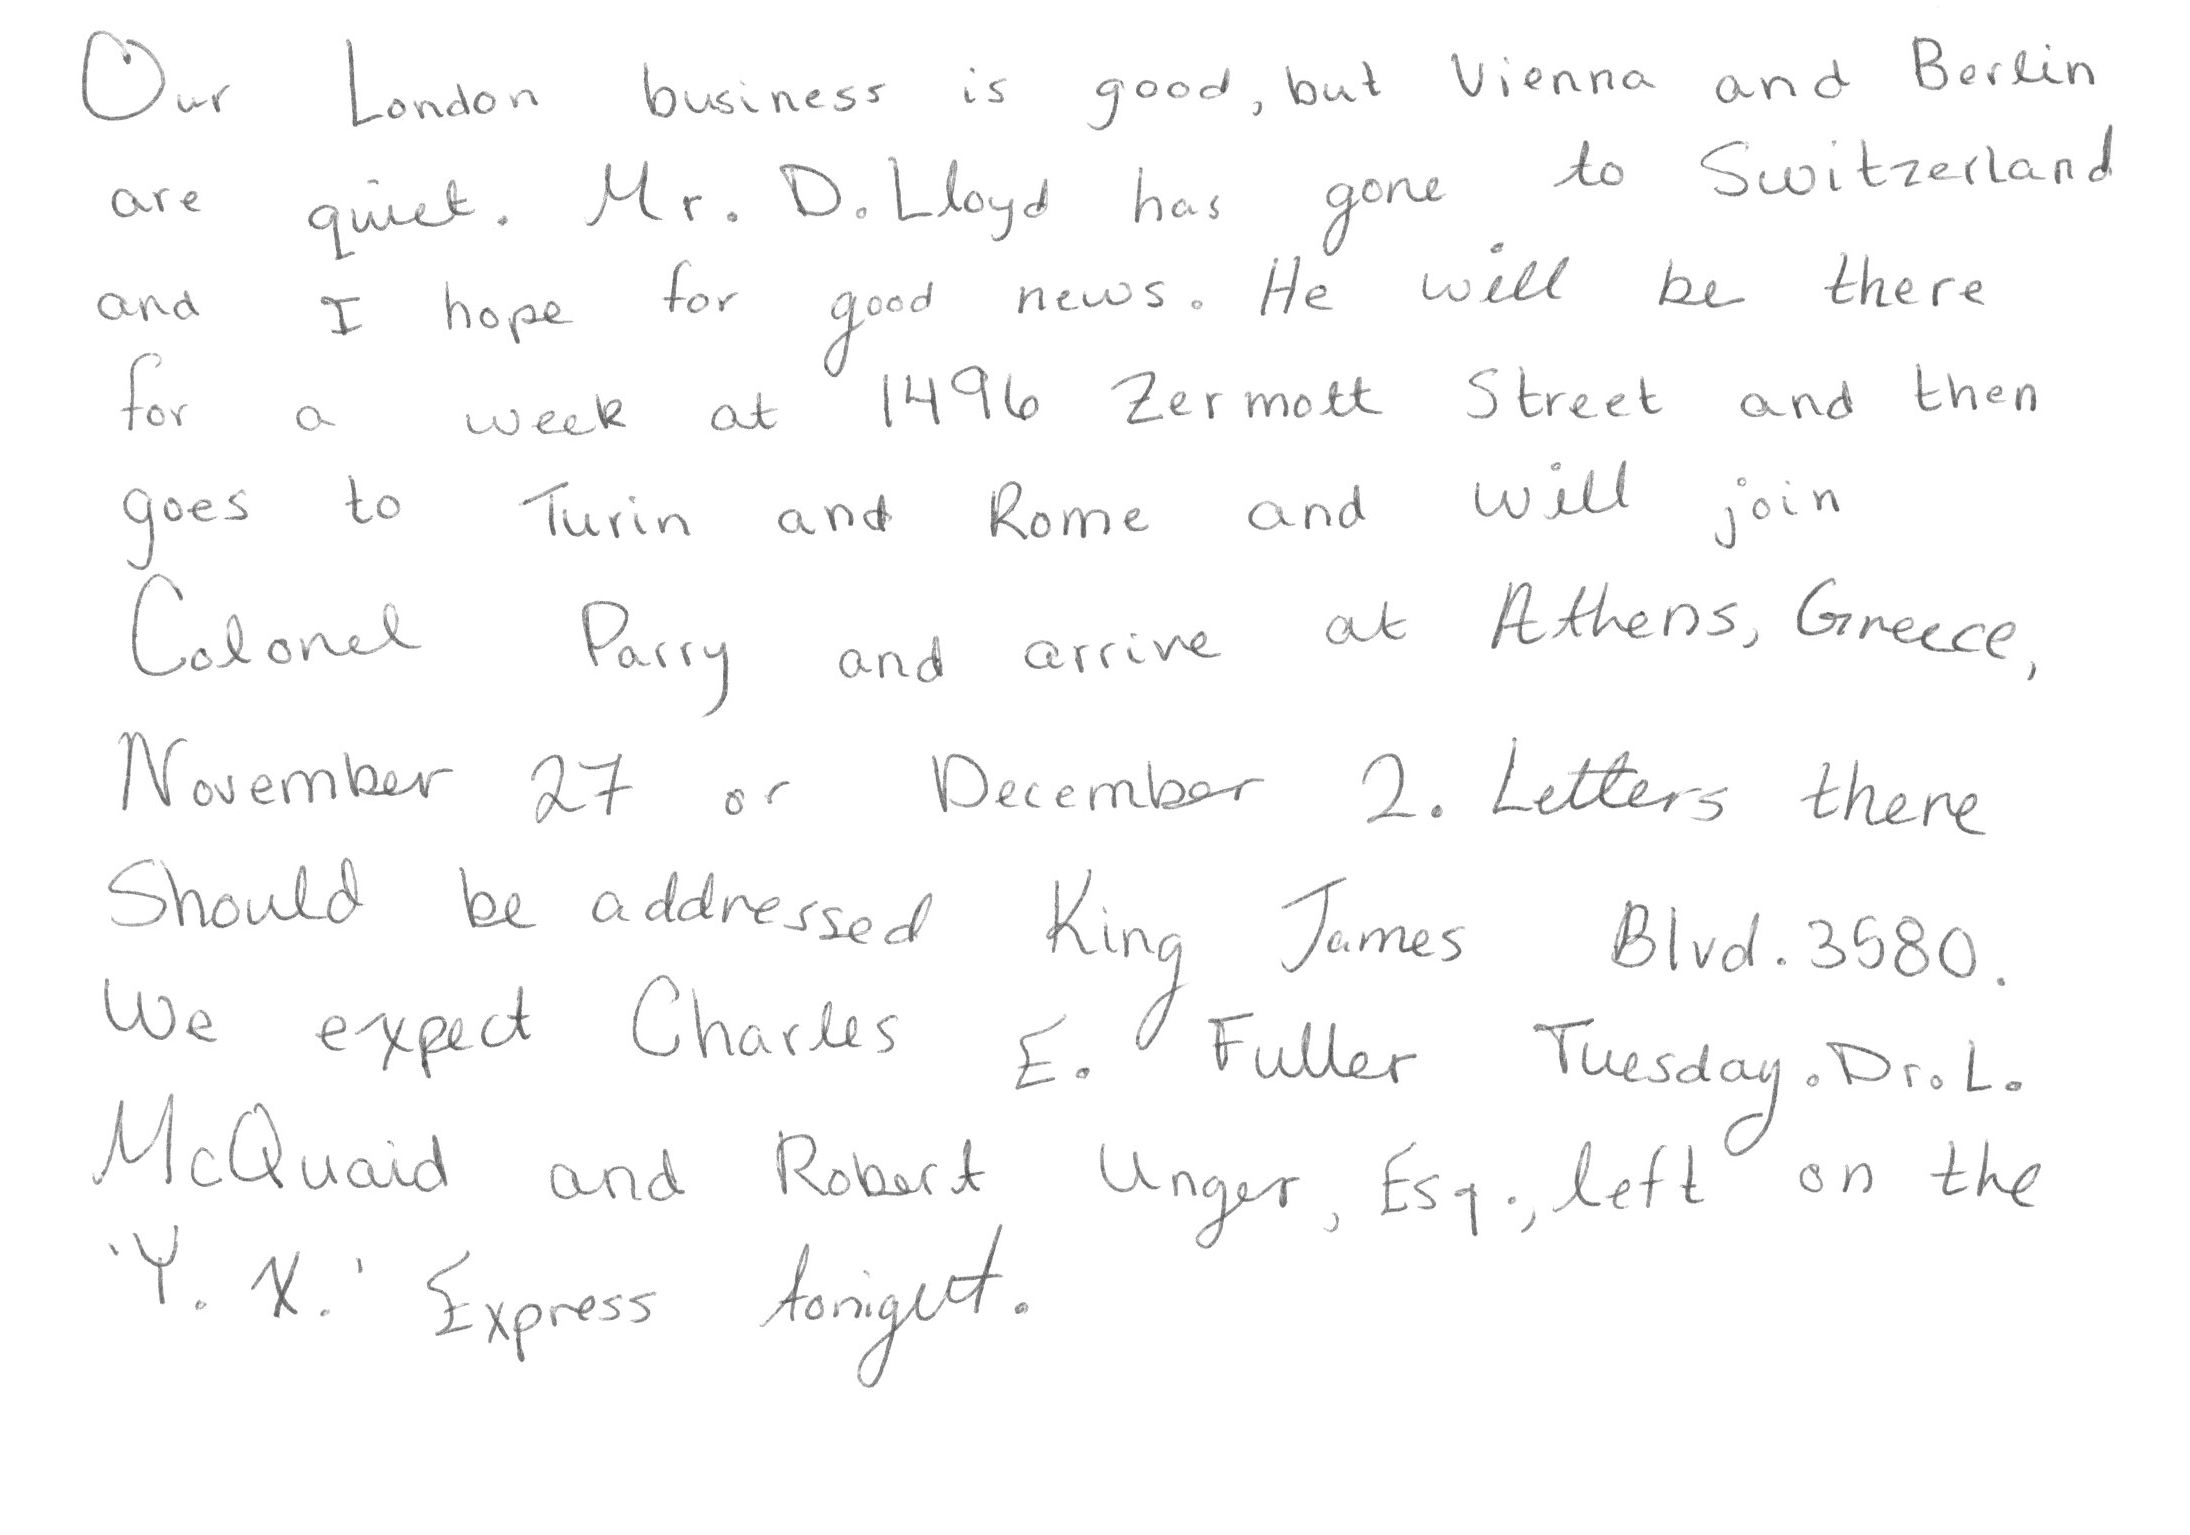 Our London business is good, but Vienna and Berlin
are quiet. Mr. D. Lloyd has gone to Switzerland
and I hope for good news. He will be there
for a week at 1496 Zermott Street and then
goes to Turin and Rome and will join
Colonel Parry and arrive at Athens, Greece,
November 27 or December 2. Letters there
Should be addressed King James Blvd. 3580.
We expect Charles E. Fuller Tuesday. Dr. L.
McQuaid and Robert Unger, Esq., left on the
'Y. X.' Express tonight.